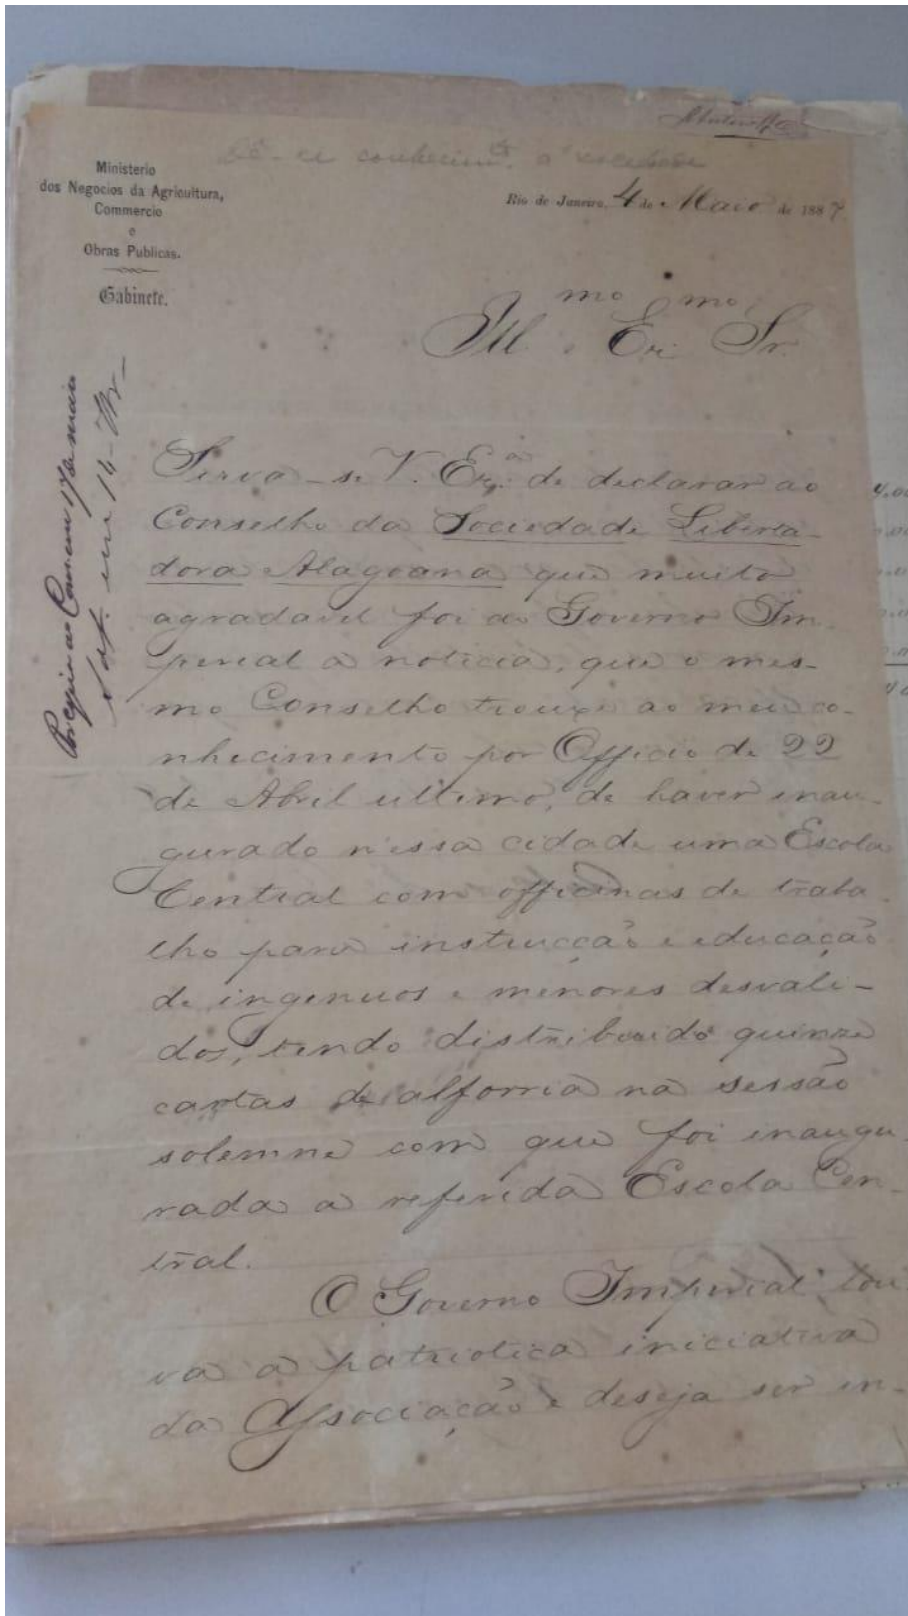 Dê-se conhecimto. á sociedade
Ministerio
dos Negocios da Agricultura,
Commercio
e
Obras Publicas.
Gabinete.
Rio de Janeiro, 4 de Maio de 1887
Illmo. e Exmo. Sr.
Sirva-se V. Exa. de declarar ao
Conselho da Sociedade Liberta-
dora Alagoana que muito
agradavel foi ao Governo Im-
perial a noticia, que o mes-
mo Conselho trouxe ao meu co-
nhecimento por Officio de 22
de Abril ultimo, de haver inau-
gurado nessa cidade uma Escola
Central com officinas de traba-
lho para instrucção e educação
de ingenuos e menores desvali-
dos, tendo distribuido quinze
cartas de alforria na sessão
solemne com que foi inaugu-
rada a referida Escola Cen-
tral.
O Governo Imperial lou-
va a patriotica iniciativa
da Associação e deseja ser in-